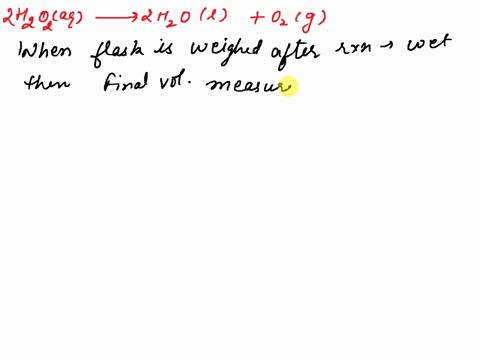 2H₂O₂(aq) ⟶ 2H₂O(l) + O₂(g)
When flask is weighed after rxn → wet
then final vol. measur